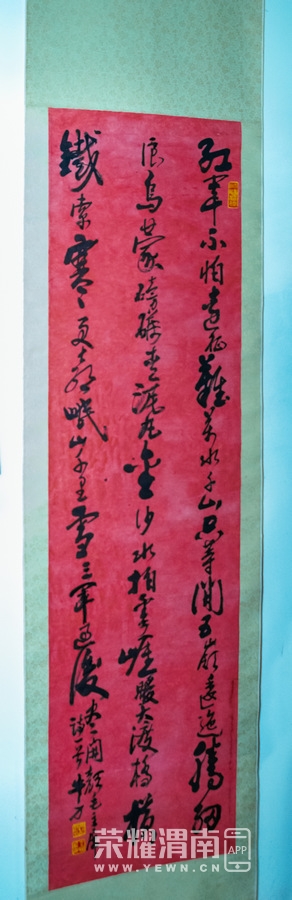 红军不怕远征难万水千山只等闲五岭逶迤腾细
浪乌蒙磅礴走泥丸金沙水拍云崖暖大渡桥横
鐵索寒更喜岷山千里雪三军过后
尽开颜毛主席
诗
荣耀渭南 APP
WWW.YEWN.CN